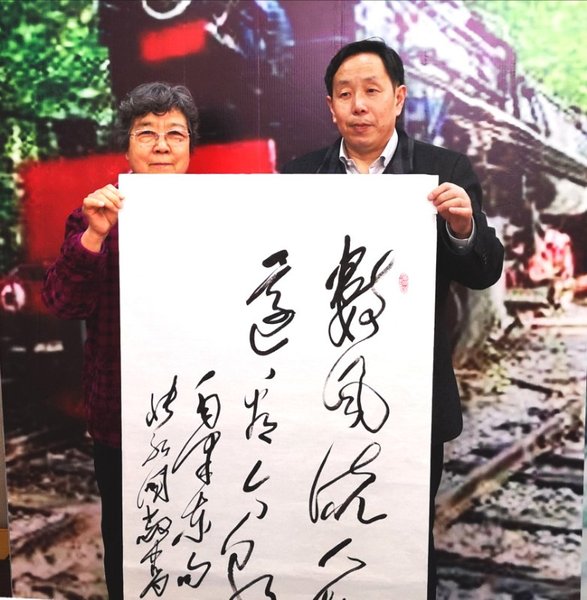 数风流人物
还看今朝
毛泽东句